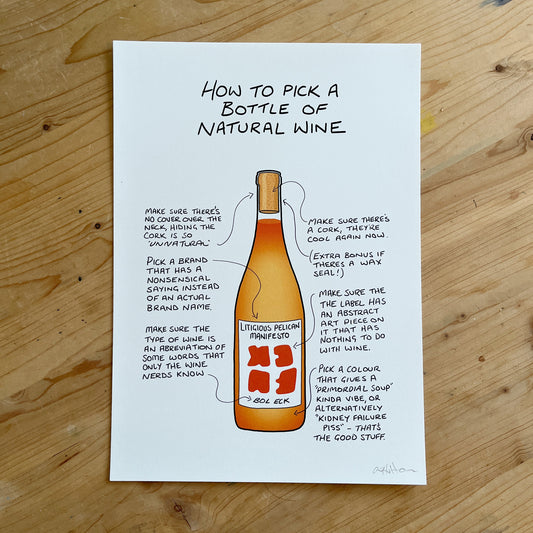 HOW TO PICK A
BOTTLE OF
NATURAL WINE
MAKE SURE THERE'S
NO COVER OVER THE
NECK, HIDING THE
CORK IS SO
'UNNATURAL'
PICK A BRAND
THAT HAS A
NONSENSICAL
SAYING INSTEAD
OF AN ACTUAL
BRAND NAME.
MAKE SURE THE
TYPE OF WINE IS
AN ABREVIATION OF
SOME WORDS THAT
ONLY THE WINE
NERDS KNOW
LITIGIOUS PELICAN
MANIFESTO
BOL ECK
MAKE SURE THERE'S
A CORK, THEY'RE
COOL AGAIN NOW.
(EXTRA BONUS IF
THERES A WAX
SEAL!)
MAKE SURE THE
THE LABEL HAS
AN ABSTRACT
ART PIECE ON
IT THAT HAS
NOTHING TO DO
WITH WINE.
PICK A COLOUR
THAT GIVES A
"PRIMORDIAL SOUP"
KINDA VIBE, OR
ALTERNATIVELY
"KIDNEY FAILURE
PISS" - THAT'S
THE GOOD STUFF.